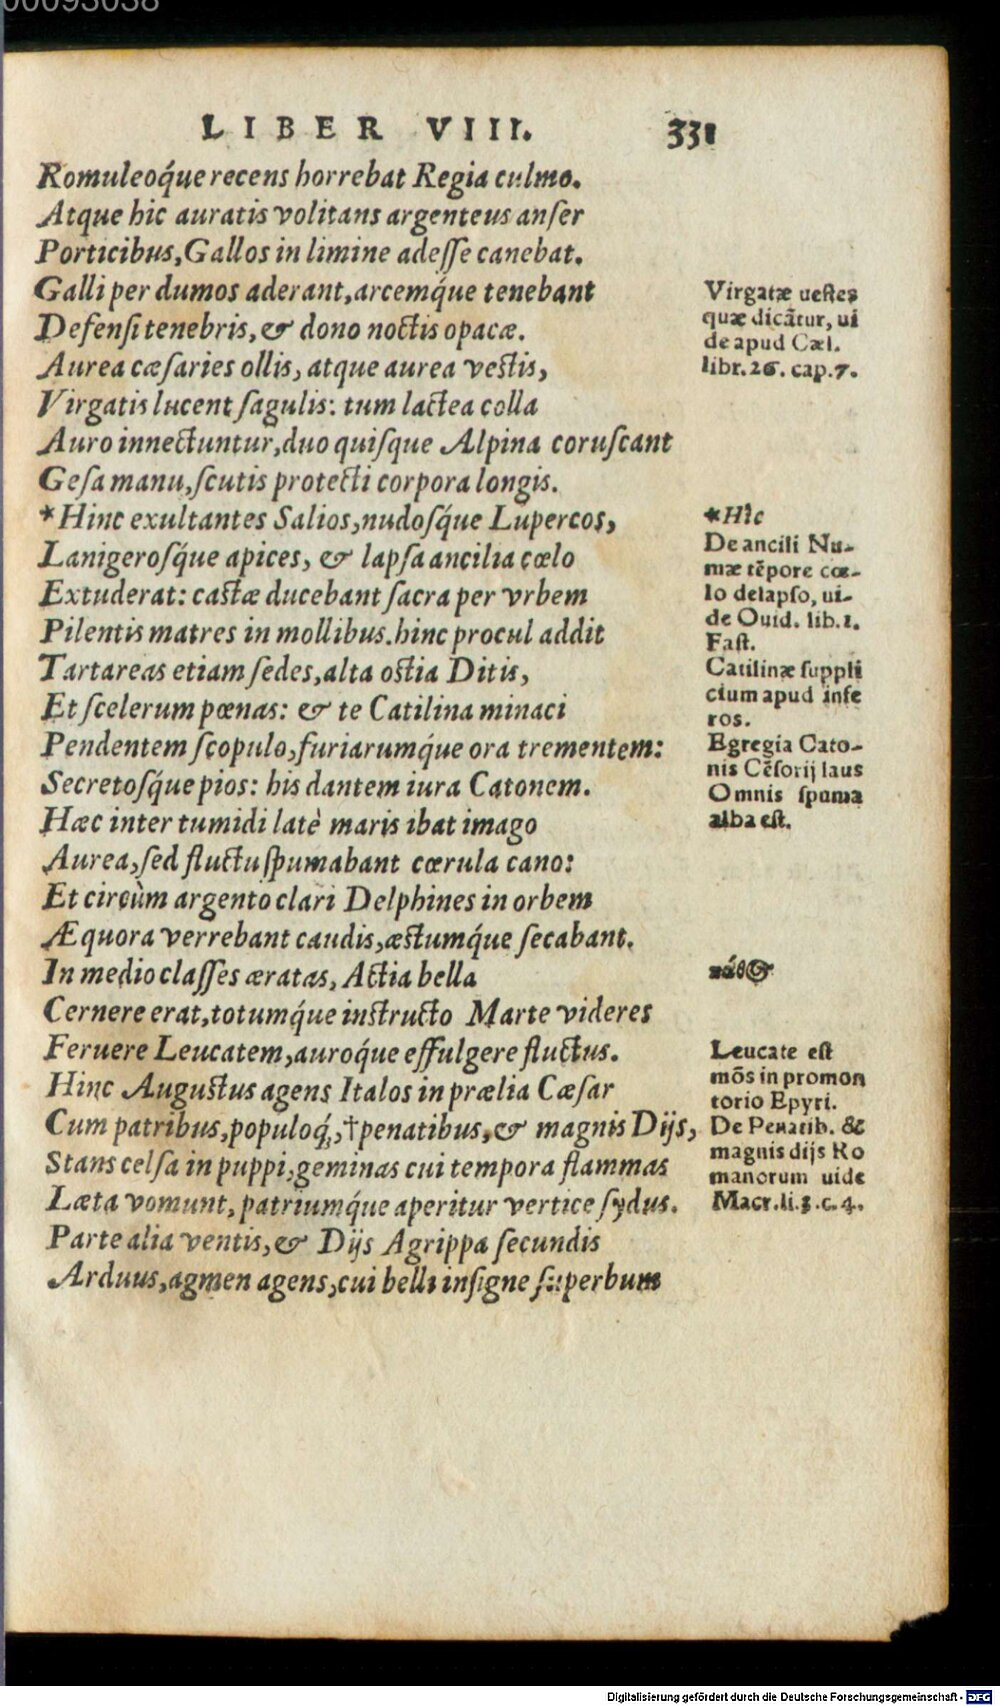 00093038
LIBER VIII. 331
Romuleoq́ue recens horrebat Regia culmo.
Atque hic auratis volitans argenteus anſer
Porticibus, Gallos in limine adeſſe canebat.
Galli per dumos aderant, arcemq́ue tenebant
Defenſi tenebris, & dono noctis opacæ.
Aurea cæſaries ollis, atque aurea veſtis,
Virgatis lucent ſagulis: tum lactea colla
Auro innectuntur, duo quiſque Alpina coruſcant
Geſa manu, ſcutis protecti corpora longis.
*Hinc exultantes Salios, nudoſq́ue Lupercos,
Lanigeroſq́ue apices, & lapſa ancilia cœlo
Extuderat: caſtæ ducebant ſacra per vrbem
Pilentis matres in mollibus. hinc procul addit
Tartareas etiam ſedes, alta oſtia Ditis,
Et ſcelerum pœnas: & te Catilina minaci
Pendentem ſcopulo, furiarumq́ue ora trementem:
Secretoſq́ue pios: his dantem iura Catonem.
Hæc inter tumidi latè maris ibat imago
Aurea, ſed fluctu ſpumabant cœrula cano:
Et circùm argento clari Delphines in orbem
Æquora verrebant caudis, æſtumq́ue ſecabant.
In medio claſſes æratas, Actia bella
Cernere erat, totumq́ue inſtructo Marte videres
Feruere Leucatem, auroq́ue effulgere fluctus.
Hinc Auguſtus agens Italos in prælia Cæſar
Cum patribus, populoq́;, †penatibus, & magnis Dijs,
Stans celſa in puppi, geminas cui tempora flammas
Læta vomunt, patriumq́ue aperitur vertice ſydus.
Parte alia ventis, & Dijs Agrippa ſecundis
Arduus, agmen agens, cui belli inſigne ſuperbum
Virgatæ ueſtes
quæ dicātur, ui
de apud Cæl.
libr. 26. cap. 7.
*Hìc
De ancili Nu-
mæ tēpore cœ-
lo delapſo, ui-
de Ouid. lib. 1.
Faſt.
Catilinæ ſuppli
cium apud infe
ros.
Egregia Cato-
nis Cēſorij laus
Omnis ſpuma
alba eſt.
Leucate eſt
mōs in promon
torio Epyri.
De Penatib. &
magnis dijs Ro
manorum uide
Macr. li. 3. c. 4.
Digitalisierung gefördert durch die Deutsche Forschungsgemeinschaft - DFG